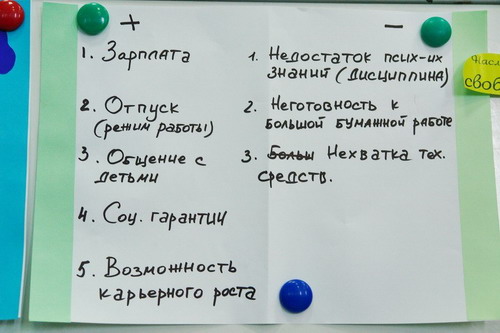 +
1. Зарплата
2. Отпуск
(режим работы)
3. Общение с
детьми
4. Соц. гарантии
5. Возможность
карьерного роста
–
1. Недостаток псих-их
знаний (дисциплина)
2. Неготовность к
большой бумажной работе
3. Больш Нехватка тех.
средств.
своб